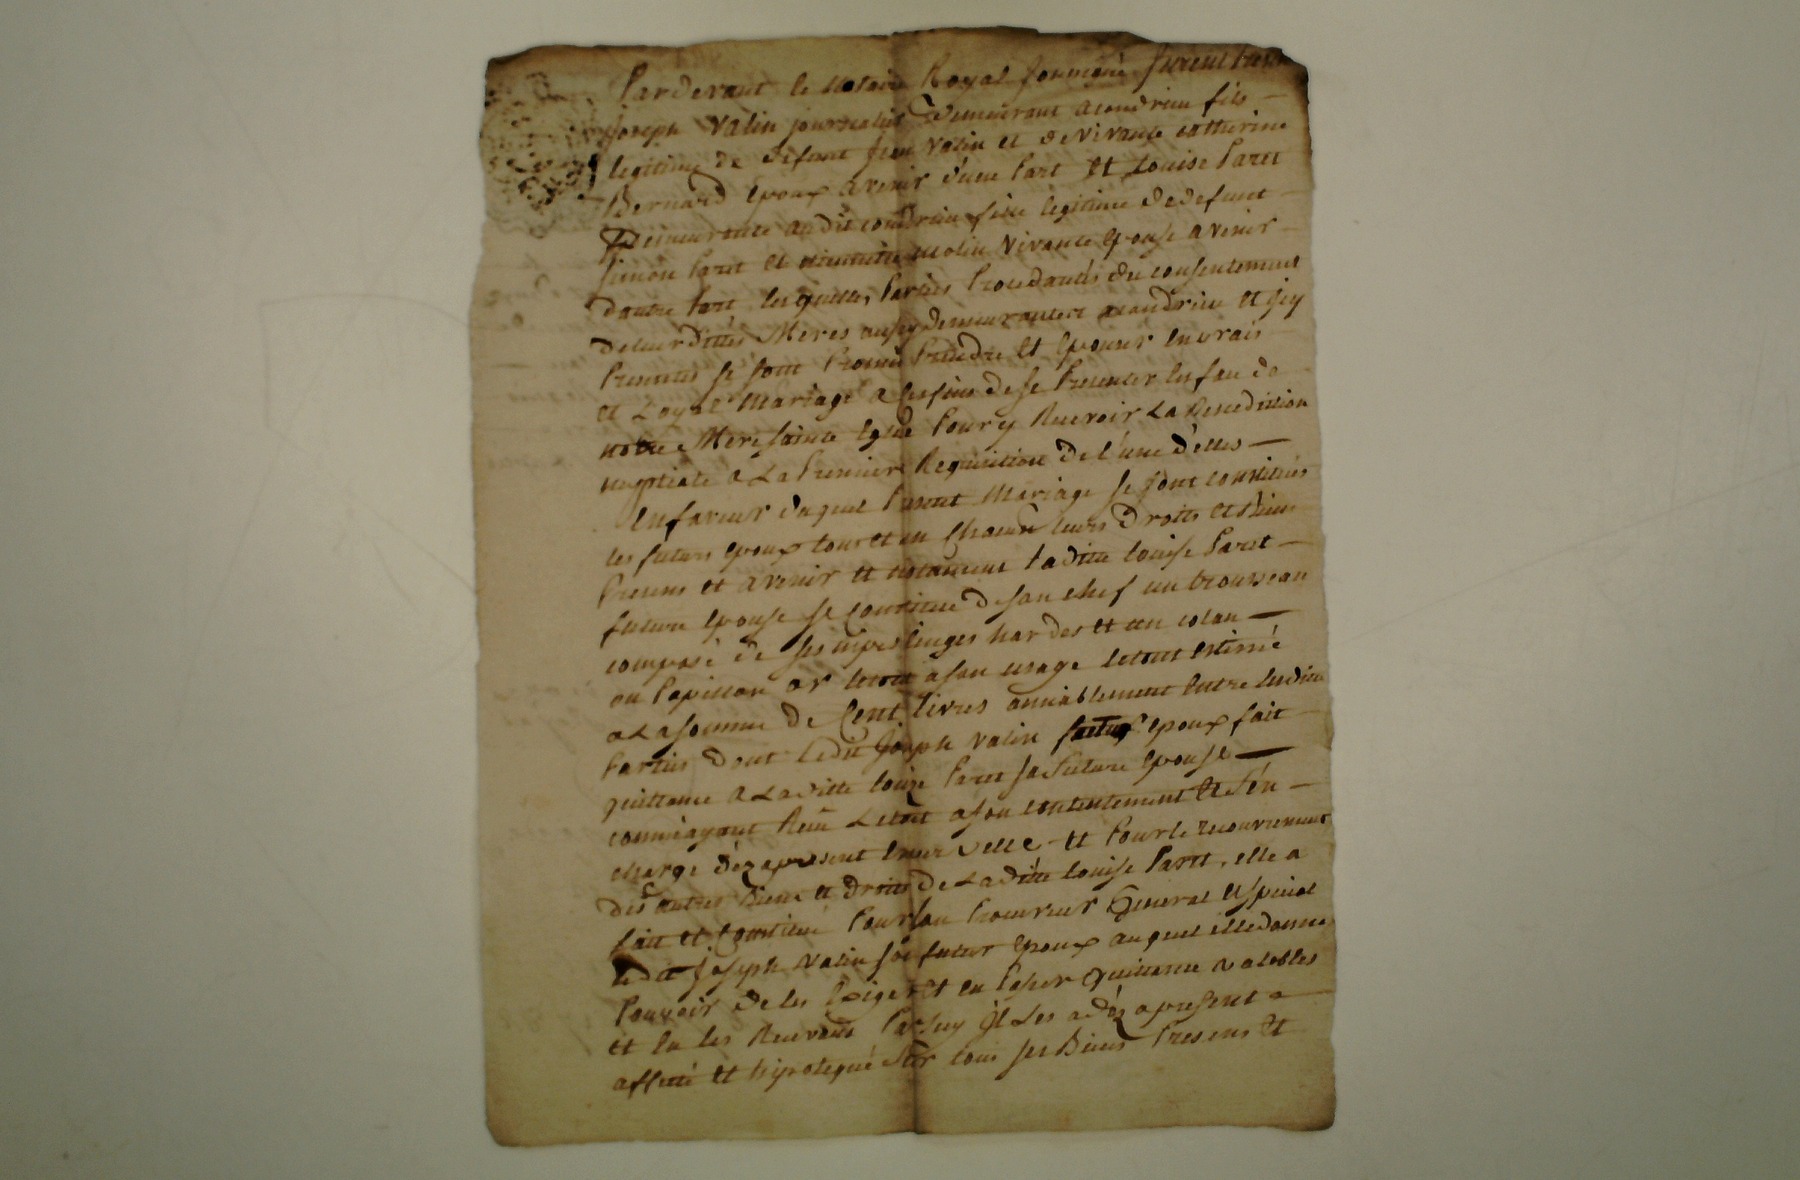 Pardevant le Notaire Royal soussigné furent
Joseph Valin journalier Demeurant a condrieu fils
legitime de defunt Jean Valin et de vivante catherine
Bernard Epoux avenir d'une Part Et Louise Paret
Demeurante au dit condrieu fille legitime de defunt
Simon Paret et molin vivante Epouse avenir
dautre Part lesquelles Parties Procedantes du consentement
de leur dittes Meres aussy Demeurantes a condrieu et icy
Presentes se sont Promis Prendre Et Epouser en vrais
et Loyal Mariage a ces fins de se Presenter en face de
notre Mere sainte Eglise Pour y Recevoir La Benediction
nuptiale a La Premiere Requisition de l'une d'elles
En faveur duquel Present Mariage se sont constitués
les futurs Epoux tout et un chacun leurs Droits et Biens
Presens et avenir et notament ladite louise Paret
future Epouse se constitue de son chef un trousseau
composé de ses linges hardes et un colan
ou Papillon or letout a son usage letout estimé
a La somme de Cent livres amiablement Entre lesdittes
Parties Dont ledit Joseph Valin futur Epoux fait
quittance a La ditte louize Paret sa future Epouse
comme ayant Reçu Letout a son contentement Et s'en
charge dez apresent Envers Elle Et Pour le recouvrement
des autres Biens et Droits de La ditte louise Paret, elle a
fait et Constitué Pour son Procureur General Et special
ledit Joseph Valin son futur Epoux auquel elle donne
Pouvoir de les Exiger Et en Passer Quittance valables
et En les Recevant Par luy Il Les a dés apresent
affecté et hipotequé sur tous ses Biens Presens Et